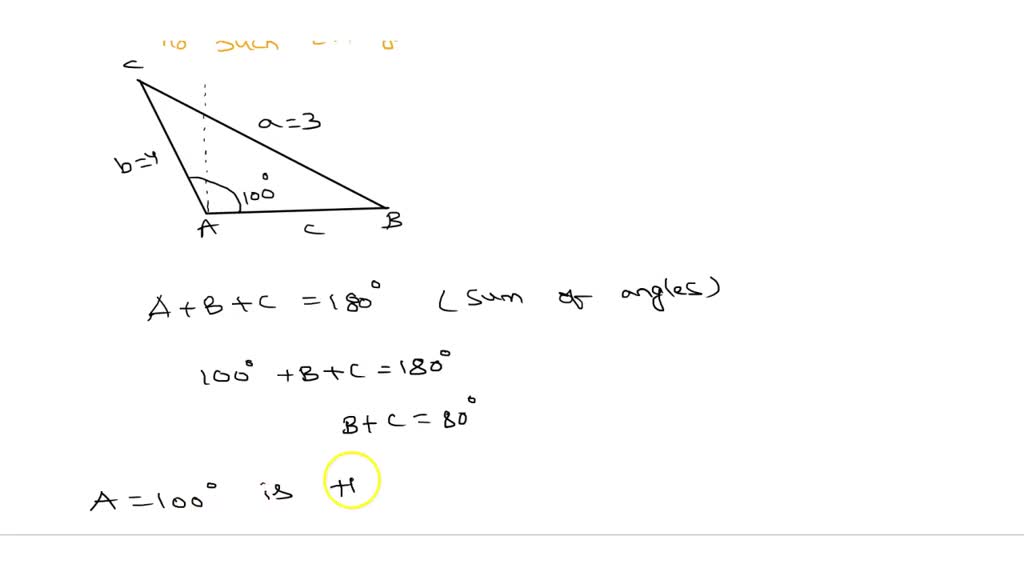 no such
C
a=3
b=4
100°
A
C
B
A+B+C = 180° (sum of angles)
100° +B+C = 180°
B+C = 80°
A = 100° is